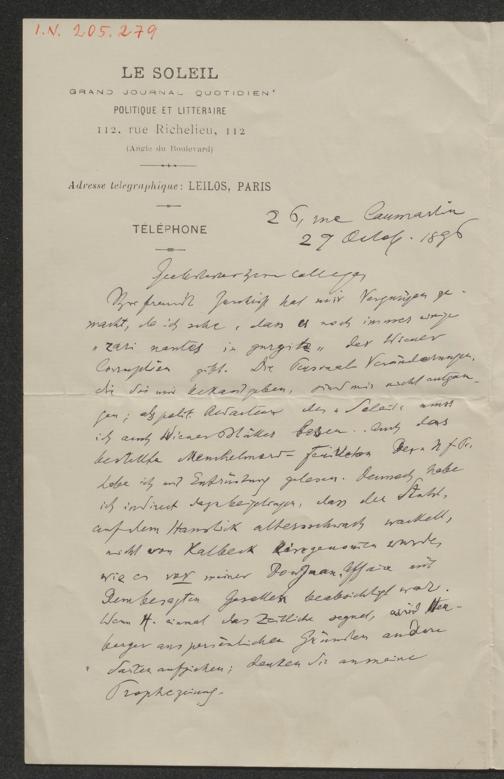 I.N. 205.279
LE SOLEIL
GRAND JOURNAL QUOTIDIEN
POLITIQUE ET LITTÉRAIRE
112, rue Richelieu, 112
(Angle du Boulevard)
Adresse télégraphique: LEILOS, PARIS
TÉLÉPHONE
26, rue Caumartin
27 Octob. 1896
Ihr freundl. hat mir Vergnügen ge-
macht, da ich sehe, dass es noch immer wenige
"rari nantes in gurgite" der Wiener
Corruption gibt. Die Personal-Veränderungen,
die Sie mir bekanntgeben, sind mir nicht entgan-
gen; als polit. Redacteur des "Soleil" muss
ich auch Wiener Blätter lesen. Auch das
bestellte Feuilleton der N. f. Pr.
habe ich mit Entrüstung gelesen. Demnach habe
ich indirect dazu beigetragen, dass der Stuhl,
auf dem Hanslick altersschwach wackelt,
nicht von Kalbeck eingenommen wurde,
wie es vor meiner Affaire mit
Dembesagten Gesellen beabsichtigt war.
Wenn H. einmal das Zeitliche segnet, wird Heu-
berger aus persönlichen Gründen andere
Saiten aufziehen; denken Sie an meine
Prophezeiung.